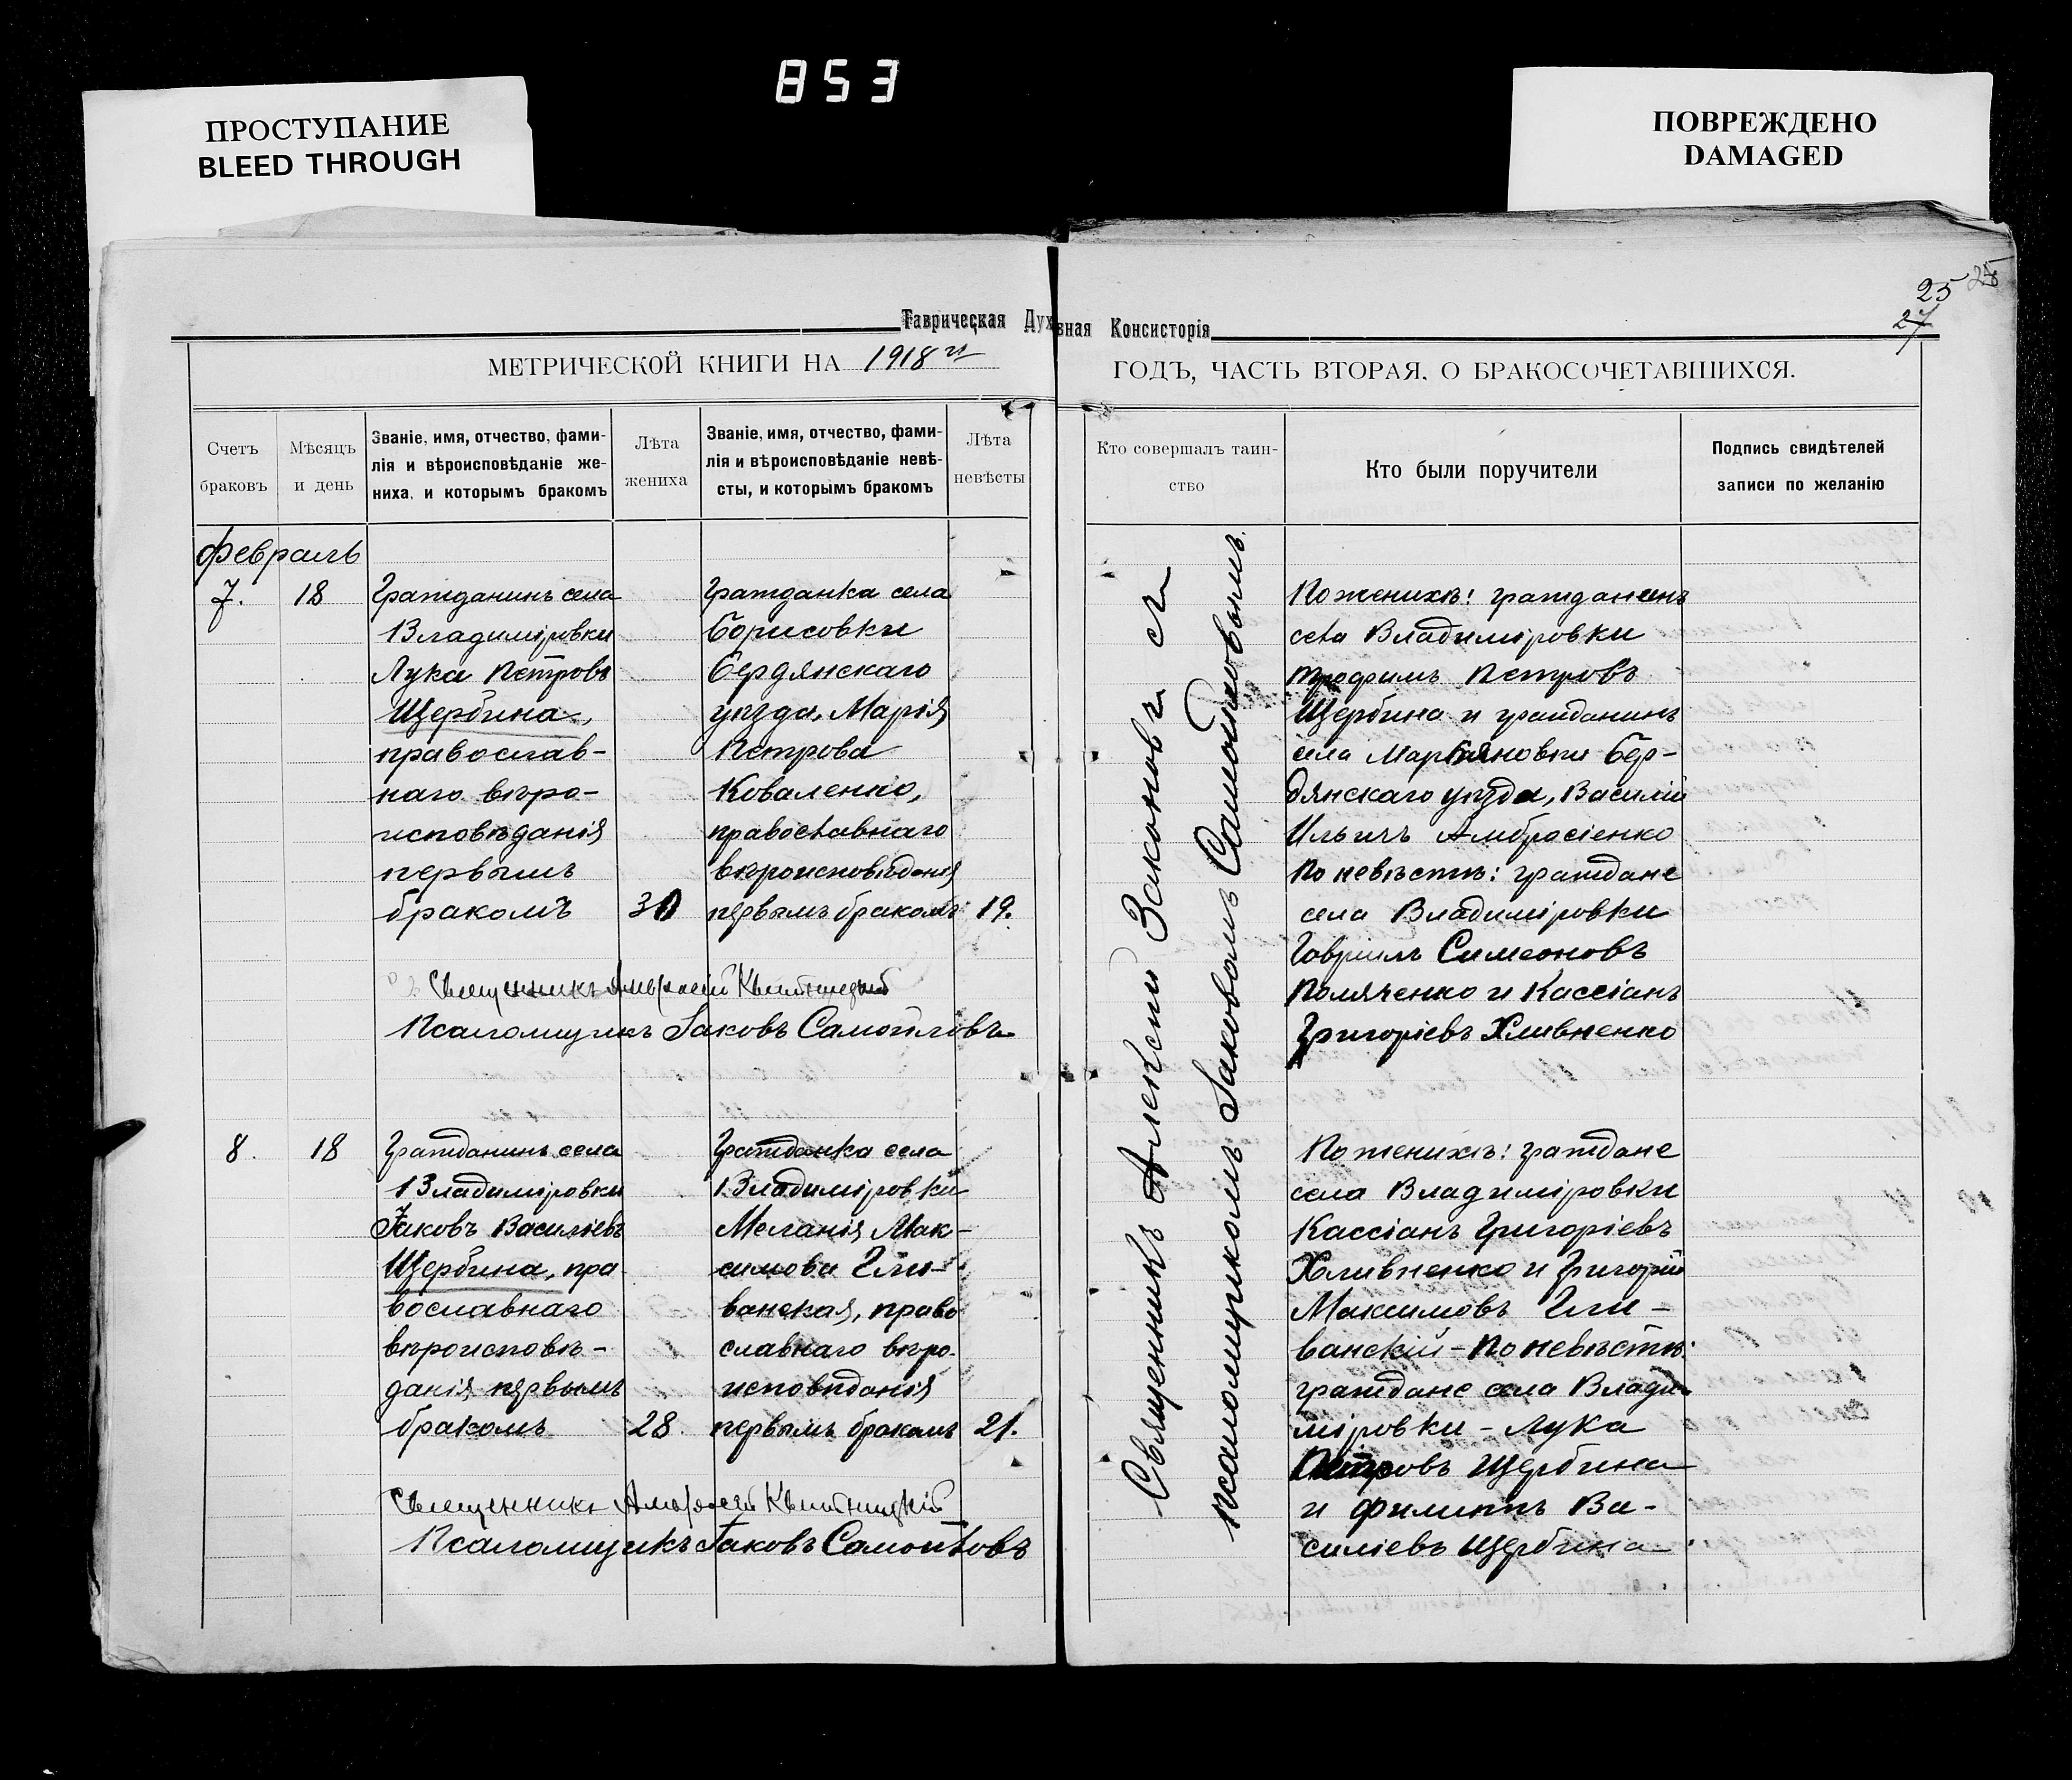 853
ПРОСТУПАНИЕ
BLEED THROUGH
ПОВРЕЖДЕНО
DAMAGED
25
27
Таврическая Духовная Консисторія
МЕТРИЧЕСКОЙ КНИГИ НА 1918 г.
ГОДЪ, ЧАСТЬ ВТОРАЯ, О БРАКОСОЧЕТАВШИХСЯ.
Счетъ
браковъ
Мѣсяцъ
и день
Званіе, имя, отчество, фами-
лія и вѣроисповѣданіе же-
ниха, и которымъ бракомъ
Лѣта
жениха
Званіе, имя, отчество, фами-
лія и вѣроисповѣданіе невѣ-
сты, и которымъ бракомъ
Лѣта
невѣсты
Кто совершалъ таин-
ство
Кто были поручители
Подпись свидѣтелей
записи по желанію
Февраль
7.
18
Гражданинъ села
Владиміровки
Лука Петровъ
Щербина,
православ-
наго вѣро-
исповѣданія
первымъ
бракомъ
30
Гражданка села
Борисовки
Бердянскаго
уѣзда, Марія
Петрова
Коваленко,
православнаго
вѣроисповѣданія
первымъ бракомъ
19.
Священникъ Амвросій
Псаломщикъ Іаковъ Самойловъ
Священникъ Алексій Законовъ съ
псаломщикомъ Іаковомъ Самойловымъ.
По женихѣ: гражданинъ
села Владиміровки
Трофимъ Петровъ
Щербина и гражданинъ
села Мартыновки Бер-
дянскаго уѣзда, Василій
Ильичъ Амбросіенко
По невѣстѣ: граждане
села Владиміровки
Гавріилъ Симеоновъ
Поляченко и Кассіанъ
Григоріевъ Хливненко
8.
18
Гражданинъ села
Владиміровки
Іаковъ Василіевъ
Щербина, пра-
вославнаго
вѣроисповѣ-
данія первымъ
бракомъ
28.
Гражданка села
Владиміровки
Меланія Мак-
симова Гли-
ванская, право
славнаго вѣро-
исповѣданія
первымъ бракомъ
21.
Священникъ Амвросій
Псаломщикъ Іаковъ Самойловъ
По женихѣ: граждане
села Владиміровки
Кассіанъ Григоріевъ
Хливненко и Григорій
Максимовъ Гли-
ванскій - По невѣстѣ:
граждане села Влади-
міровки - Лука
Петровъ Щербина
и Филиппъ Ва-
силіевъ Щербина